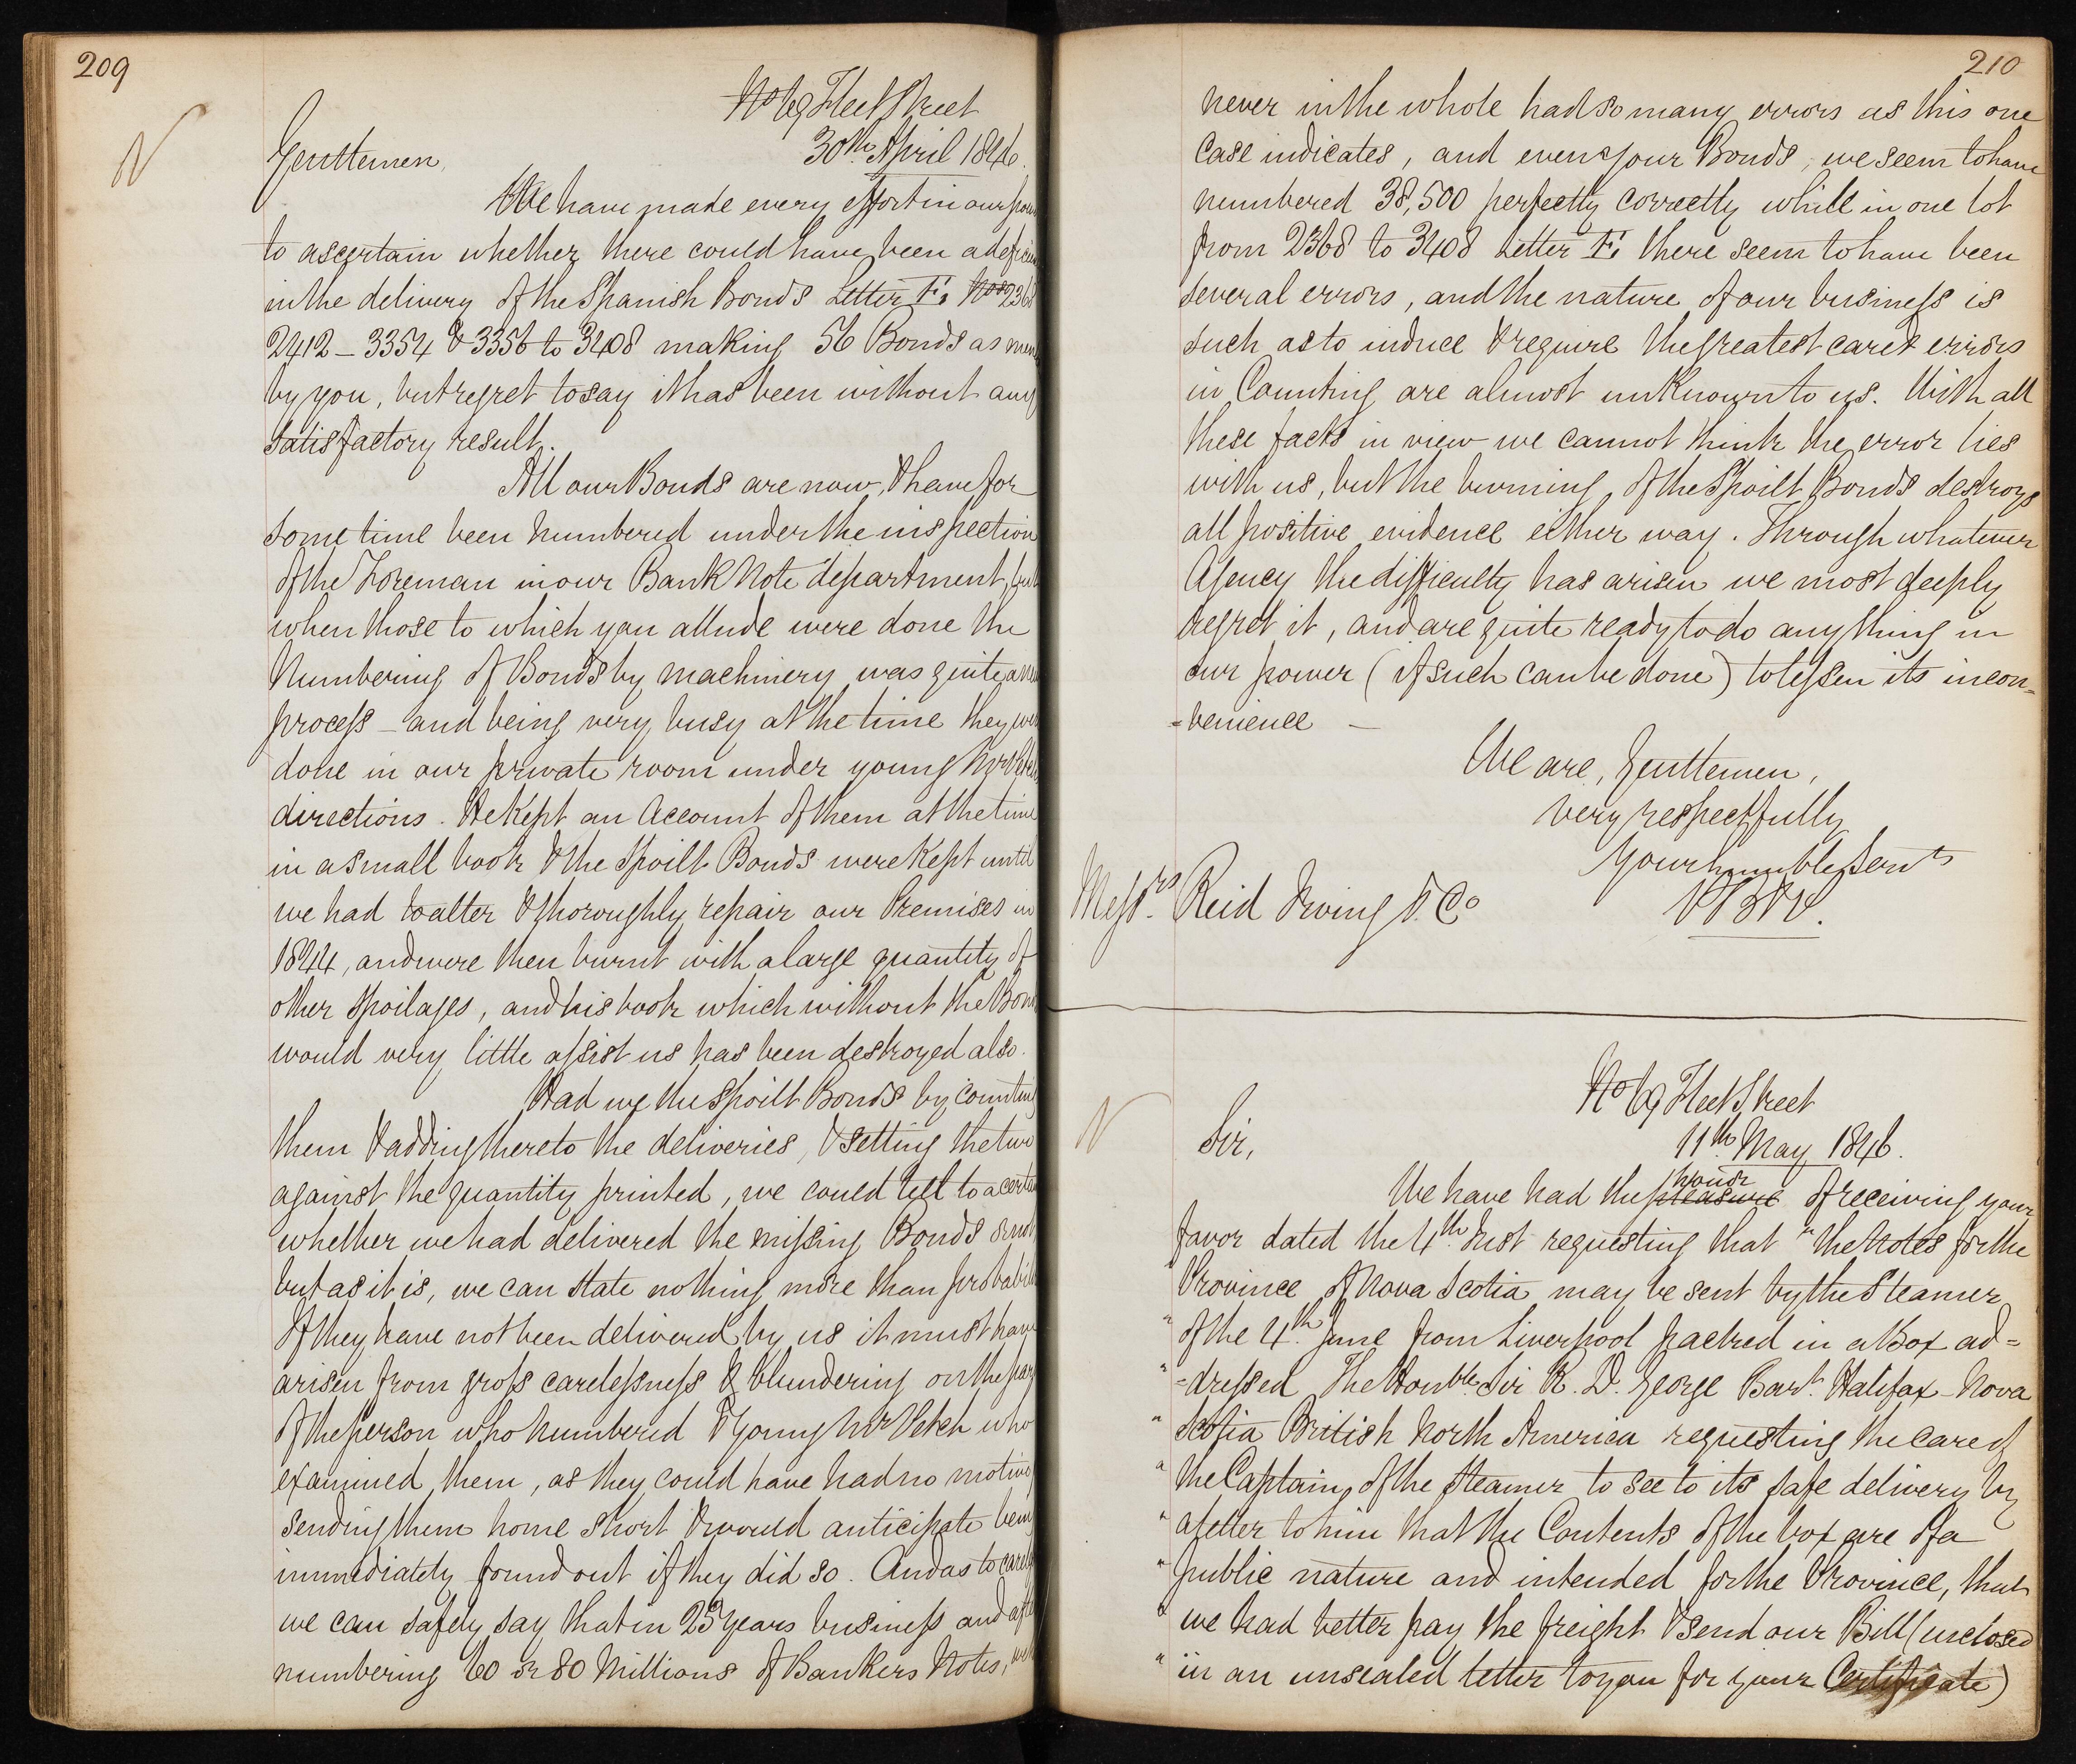 209
No 69 Fleet Street
30th April 1846.
Gentlemen,
We have made every effort in our power
to ascertain whether there could have been a deficien
in the delivery of the Spanish Bonds Letter F. Nos 2368
2412 - 3354 & 3356 to 3408 making 56 Bonds as
by you, but regret to say it has been without any
satisfactory result.
All our Bonds are now, & have for
some time been numbered under the inspection
of the Foreman in our Bank Note department, but
when those to which you allude were done the
Numbering of Bonds by machinery was quite a new
process - and being very busy at the time they were
done in our private room under young Mr Petch
directions. He Kept an Account of them at the time
in a small book & the Spoilt Bonds were Kept until
we had to alter & thoroughly repair our Premises in
1844, and were then burnt with a large quantity of
other Spoilages, and his book which without the Bonds
would very little assist us has been destroyed also.
Had we the Spoilt Bonds by counting
them & adding thereto the deliveries, & setting the two
against the quantity printed, we could tell to a certain
whether we had delivered the missing Bonds or not
but as it is, we can state nothing more than probabili
If they have not been delivered by us it must have
arisen from gross carelessness & blundering on the part
of the person who numbered & Young Mr Petch who
examined them, as they could have had no motive
sending them home short & would anticipate being
immediately found out if they did so. And as to carele
we can safely say that in 25 years business and after
numbering 60 or 80 Millions of Bankers Notes, we
210
never in the whole had so many errors as this one
case indicates, and even of your Bonds, we seem to have
numbered 38,500 perfectly correctly while in one lot
from 2368 to 3408 Letter F. there seem to have been
several errors, and the nature of our business is
such as to induce & require the greatest care & errors
in Counting are almost unKnown to us. With all
these facts in view we cannot think the error lies
with us, but the burning of the Spoilt Bonds destroys
all positive evidence either way. Through whatever
Agency the difficulty has arisen we most deeply
regret it, and are quite ready to do anything in
our power (if such can be done) to lessen its incon=
=venience -
We are, Gentlemen,
very respectfully
Your humble Servts
PB&P.
Messrs. Reid Irving & Co
No 69 Fleet Street
11th May 1846.
Sir,
We have had the pleasure honor of receiving your
favor dated the 4th. Inst requesting that "the Notes for the
Province of Nova Scotia may be sent by the Steamer
" of the 4th. June from Liverpool packed in a Box ad=
" =dressed The Honble. Sir R. D. George Bart. Halifax - Nova
" Scotia British North America requesting the care of
" the Captain of the Steamer to see to its safe delivery by
" a letter to him that the Contents of the box are of a
" public nature and intended for the Province, that
" we had better pay the freight & send our Bill (enclosed
" in an unsealed letter to you for your Certificate)